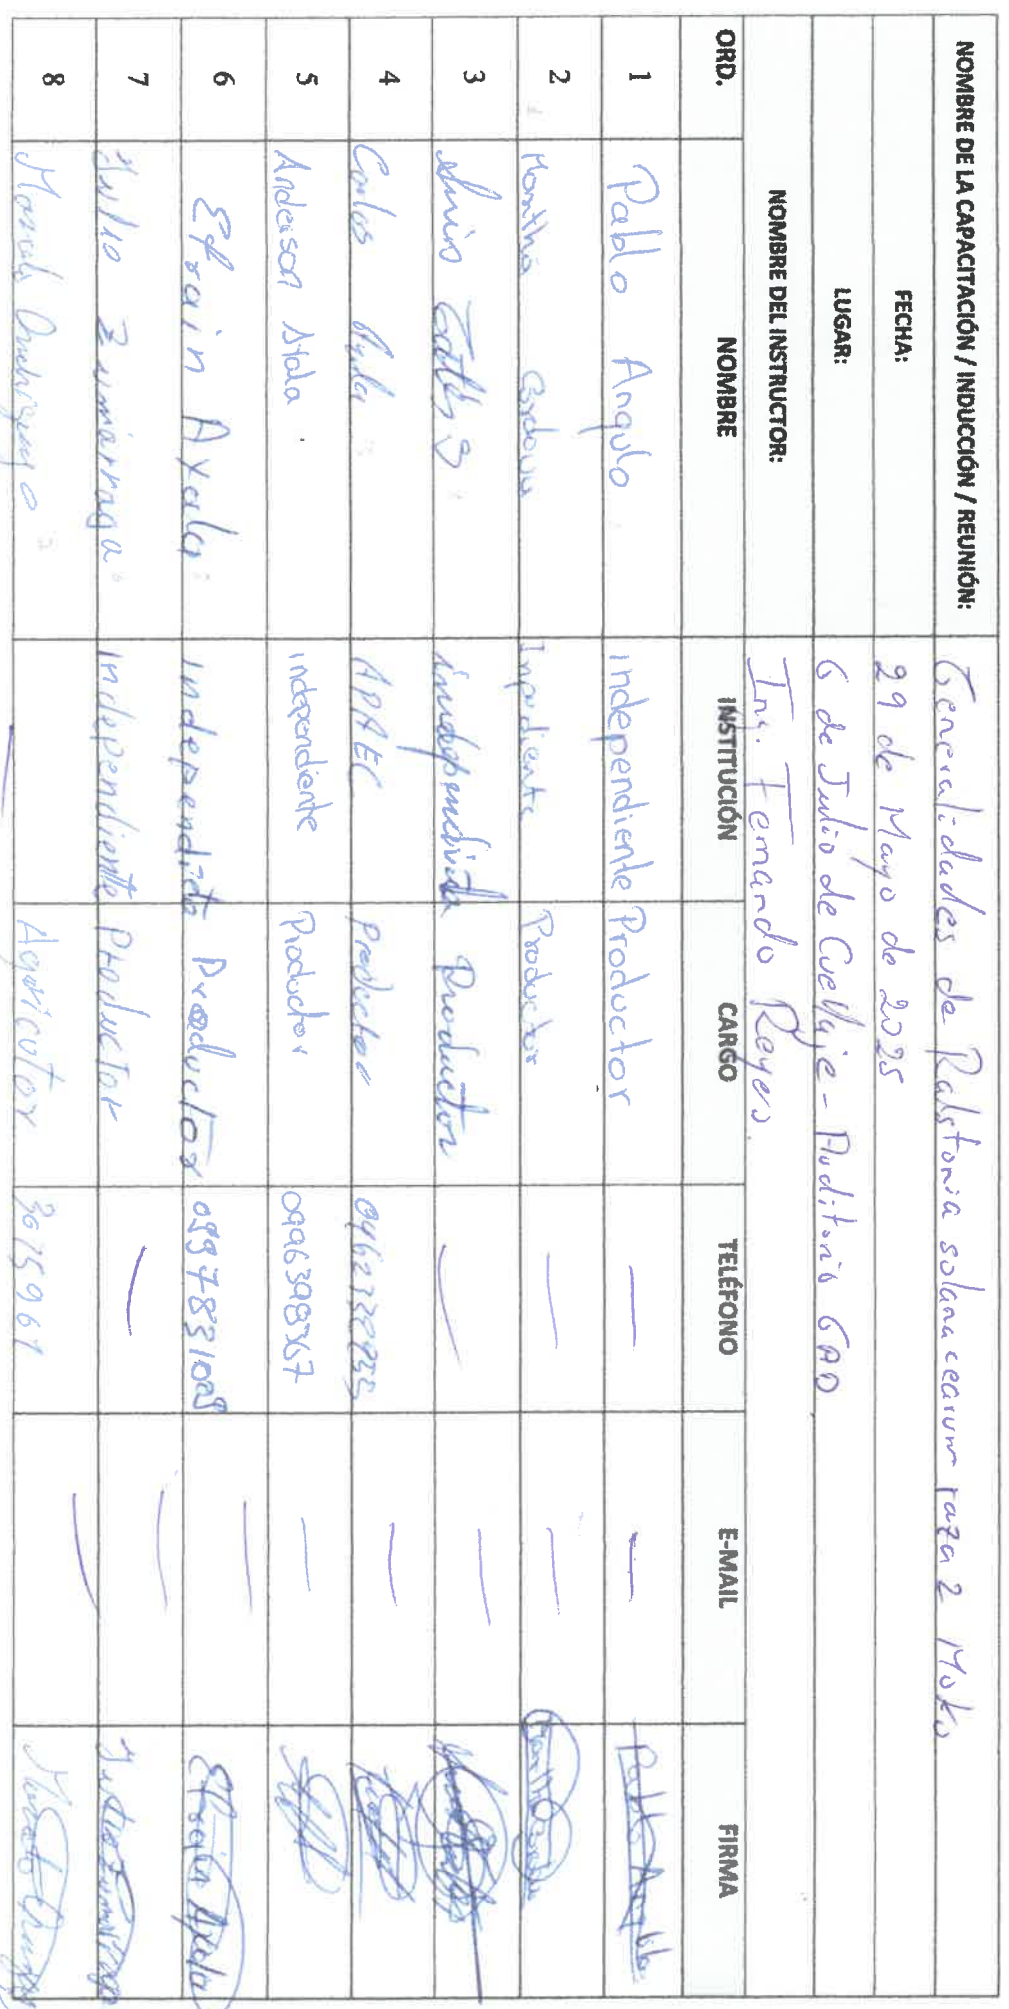 NOMBRE DE LA CAPACITACIÓN / INDUCCIÓN / REUNIÓN: Generalidades de Ralstonia solanacearum raza 2 Moko
FECHA: 29 de Mayo de 2025
LUGAR: 6 de Julio de Cuellaje - Auditorio GAD
NOMBRE DEL INSTRUCTOR: Ing. Fernando Reyes
ORD. NOMBRE INSTITUCIÓN CARGO TELÉFONO E-MAIL FIRMA
1 Pablo Angulo independiente Productor — — Pablo Angulo
2 Martha Inpendiente Productor — —
3 Productor — —
4 Carlos Ayala APAEC Productor —
5 Anderson independiente Productor 0996398367 —
6 Efrain Ayala independite Productor —  Efrain Ayala
7 Julio Zumárraga independiente Productor — —
8 Agricutor 3015961 —